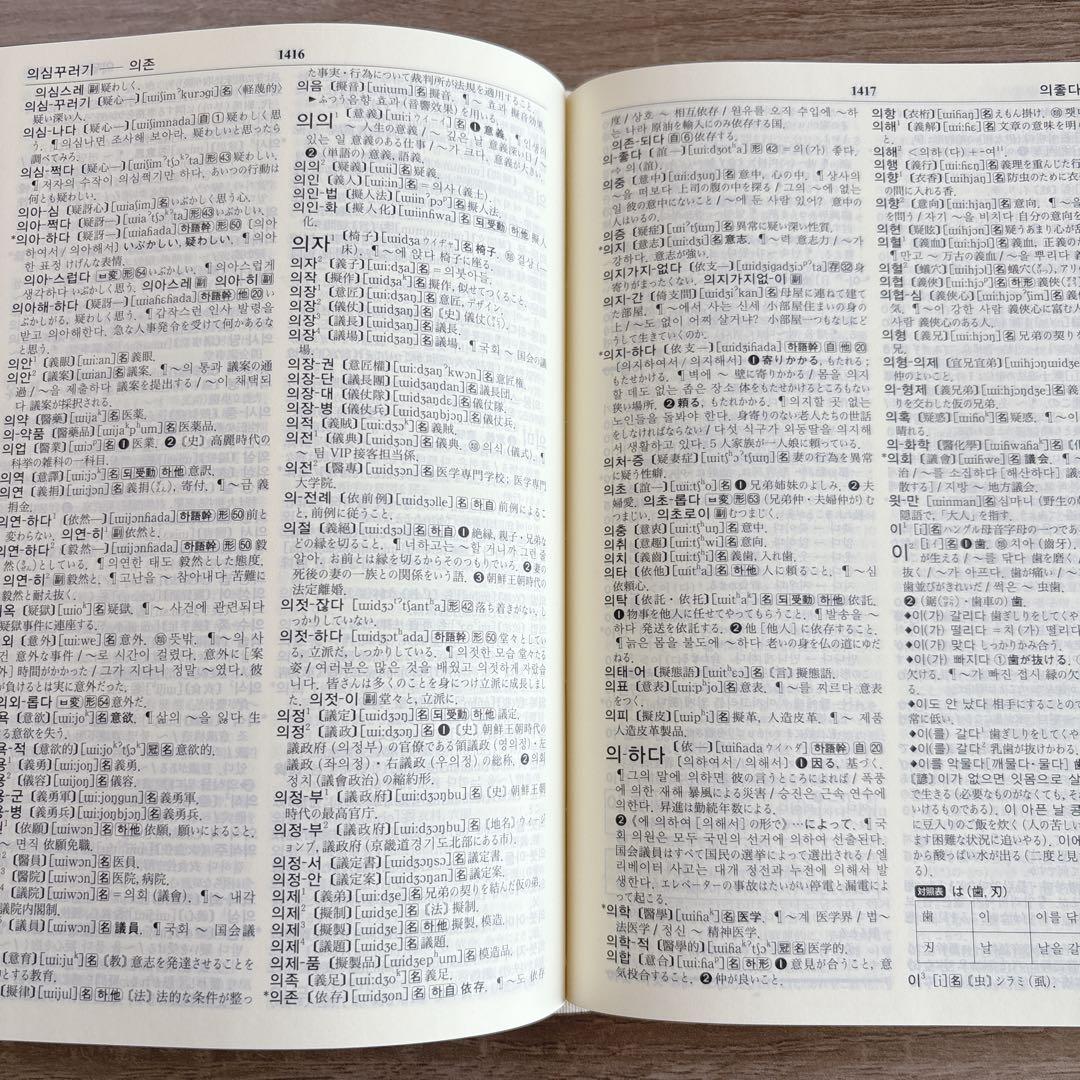 의심꾸러기 —— 의존
1416
의심스레 副 疑わしく.
의심-꾸러기 〔疑心—〕[ɯiʃimˀkurɔgi] 名 〈軽蔑的〉
疑い深い人.
의심-나다 〔疑心—〕[ɯiʃimnada] 自 ① 疑わしく思
う. ¶의심나면 조사해 보아라. 疑わしいと思ったら
調べてみろ.
의심-쩍다 〔疑心—〕[ɯiʃimˀtʃɔˀta] 形 43 疑わしい.
¶저자의 수작이 의심쩍기만 하다. あいつの行動は
何とも疑わしい.
의아-심 〔疑訝心〕[ɯiaʃim] 名 いぶかしく思う心.
의아-쩍다 〔疑訝—〕[ɯiaˀtʃɔˀta] 形 43 いぶかしい.
*의아-하다 〔疑訝—〕[ɯiaɦada] 하語幹 形 50 [의아
하여서 / 의아해서] いぶかしい. 疑わしい. ¶의아
한 표정 けげんな表情.
의아-스럽다 ㅂ変 形 54 いぶかしい. ¶의아스럽게
생각하다 いぶかしく思う. 의아스레 副 의아-히 副
의아해-하다 〔疑訝—〕[ɯiaɦɛɦada] 하語幹 他 20 い
ぶかしがる. 疑わしく思う. ¶갑작스런 인사 발령을
받고 의아해한다. 急な人事発令を受けて何かあるな
と思う.
의안¹ 〔義眼〕[ɯi:an] 名 義眼.
의안² 〔議案〕[ɯian] 名 議案. ¶～의 통과 議案の通
過 / ～을 제출하다 議案を提出する / ～이 채택되
다 議案が採択される.
의약 〔醫藥〕[ɯijaᵏ] 名 医薬.
의-약품 〔醫藥品〕[ɯijaᵏpʰum] 名 医薬品.
의업 〔醫業〕[ɯiɔᵖ] 名 ❶ 医業. ❷ 〔史〕 高麗時代の
科挙の雑科の一科目.
의역 〔意譯〕[ɯi:jɔᵏ] 名 되受動 하他 意訳.
의연 〔義捐〕[ɯi:jɔn] 名 義捐(ぎえん). 寄付. ¶～금 義
捐金.
의연-하다¹ 〔依然—〕[ɯijɔnɦada] 하語幹 形 50 前と
変わらない. 의연-히¹ 副 依然と.
의연-하다² 〔毅然—〕[ɯijɔnɦada] 하語幹 形 50 毅
然(きぜん)としている. ¶의연한 태도 毅然とした態度.
의연-히² 副 毅然と. ¶고난을 ～ 참아내다 苦難に
毅然と耐え抜く.
옥 〔疑獄〕[ɯioᵏ] 名 疑獄. ¶～ 사건에 관련되다
疑獄事件に連座する.
외 〔意外〕[ɯi:we] 名 意外. 類 뜻밖. ¶～의 사
건 意外な事件 / ～로 시간이 걸렸다. 意外に[案
外] 時間がかかった / 그가 지다니 정말 ～였다. 彼
が負けるとは実に意外だった.
의외-롭다 ㅂ変 形 54 意外だ.
욕 〔意欲〕[ɯi:joᵏ] 名 意欲. ¶삶의 ～을 잃다 生
きる意欲を失う.
욕-적 〔意欲的〕[ɯi:joᵏˀtʃɔᵏ] 冠 名 意欲的.
용¹ 〔義勇〕[ɯi:joŋ] 名 義勇.
용² 〔儀容〕[ɯijoŋ] 名 儀容.
용-군 〔義勇軍〕[ɯi:joŋgun] 名 義勇軍.
용-병 〔義勇兵〕[ɯi:joŋbjɔŋ] 名 義勇兵.
〔依願〕[ɯiwɔn] 名 하他 依願. 願いによること.
～ 면직 依願免職.
² 〔醫員〕[ɯiwɔn] 名 医員.
³ 〔醫院〕[ɯiwɔn] 名 医院. 病院.
⁴ 〔議院〕[ɯiwɔn] 名 ＝의회(議會). ¶～ 내각
議院内閣制.
〔議員〕[ɯiwɔn] 名 議員. ¶국회 ～ 国会議
〔意育〕[ɯi:juᵏ] 名 〔教〕 意志を発達させることを
とする教育.
〔擬律〕[ɯijul] 名 하他 〔法〕 法的な条件が整っ
た事実・行為について裁判所が法規を適用すること.
의음 〔擬音〕[ɯiɯm] 名 擬音. ¶～ 효과 擬音効果.
▶ふつう음향 효과(音響効果)を用いる.
의의¹ 〔意義〕[ɯi:i ウイーイ] 名 ❶ 意義. ¶～
～ 人生の意義 / ～ 깊은 날 意義深い日 / ～
있는 일 意義のある仕事 / ～가 크다. 意義が大きい.
❷ (単語の) 意義. 語義.
의의² 〔疑義〕[ɯii] 名 疑義.
의인 〔義人〕[ɯi:in] 名 ＝의사(義士).
의인-법 〔擬人法〕[ɯiinˀpɔᵖ] 名 擬人法.
의인-화 〔擬人化〕[ɯiinɦwa] 名 되受動 하他 擬人
化.
의자¹ 〔椅子〕[ɯidʒa ウイヂャ] 名 椅子. 類 걸상(—
床). ¶～에 앉다 椅子に座る.
의자² 〔義子〕[ɯi:dʒa] 名 ＝의붓아들.
의작 〔擬作〕[ɯidʒaᵏ] 名 擬作. 似せてつくること.
의장¹ 〔意匠〕[ɯi:dʒaŋ] 名 意匠. デザイン.
의장² 〔儀仗〕[ɯidʒaŋ] 名 〔史〕 儀仗(ぎじょう).
의장³ 〔議長〕[ɯidʒaŋ] 名 議長.
의장⁴ 〔議場〕[ɯidʒaŋ] 名 議場. ¶국회 ～ 国会の議
場.
의장-권 〔意匠權〕[ɯi:dʒaŋˀkwɔn] 名 意匠権.
의장-단 〔議長團〕[ɯidʒaŋdan] 名 議長団.
의장-대 〔儀仗隊〕[ɯidʒaŋdɛ] 名 儀仗隊.
의장-병 〔儀仗兵〕[ɯidʒaŋbjɔŋ] 名 儀仗兵.
의적 〔義賊〕[ɯi:dʒɔᵏ] 名 義賊.
의전¹ 〔儀典〕[ɯidʒɔn] 名 儀典. 類 의식(儀式). ¶
～ 팀 VIP接客担当係.
의전² 〔醫專〕[ɯidʒɔn] 名 医学専門学校; 医学専門
大学院.
의-전례 〔依前例〕[ɯidʒɔlle] 名 하自 前例によるこ
と. 前例に従うこと.
의절 〔義絶〕[ɯi:dʒɔl] 名 하自 ❶ 絶縁. 親子・兄弟な
どの縁を切ること. ¶너하고는 ～할 거니까 그런 줄
알아. お前とは縁を切るからそのつもりでいろ. ❷ 妻の
死後の妻の一族との関係をいう語. ❸ 朝鮮王朝時代の
法定離婚.
의젓-잖다 [ɯidʒɔˀtʃantʰa] 形 42 落ち着きがない. し
っかりしていない.
의젓-하다 [ɯidʒɔtʰada] 하語幹 形 50 堂々として
いる. 立派だ. しっかりしている. ¶의젓한 모습 堂々たる
姿 / 여러분은 많은 것을 배웠고 의젓하게 자랐습
니다. 皆さんは多くのことを身につけ立派に成長しまし
た. 의젓-이 副 堂々と. 立派に.
의정¹ 〔議定〕[ɯidʒɔŋ] 名 되受動 하他 議定.
의정² 〔議政〕[ɯidʒɔŋ] 名 ❶ 〔史〕 朝鮮王朝時代の
議政府 (의정부) の官僚である領議政 (영의정)・左
議政 (좌의정)・右議政 (우의정) の総称. ❷ 의회
정치(議會政治)の縮約形.
의정-부¹ 〔議政府〕[ɯidʒɔŋbu] 名 〔史〕 朝鮮王朝
時代の最高官庁.
의정-부² 〔議政府〕[ɯidʒɔŋbu] 名 〔地名〕 ウイヂ
ョンブ. 議政府 (京畿道京畿道北部にある市).
의정-서 〔議定書〕[ɯidʒɔŋsɔ] 名 議定書.
의정-안 〔議定案〕[ɯidʒɔŋan] 名 議定案.
의제¹ 〔義弟〕[ɯi:dʒe] 名 兄弟の契りを結んだ仮の弟.
의제² 〔擬制〕[ɯidʒe] 名 〔法〕 擬制.
의제³ 〔擬製〕[ɯidʒe] 名 하他 擬製. 模造.
의제⁴ 〔議題〕[ɯidʒe] 名 議題.
의제-품 〔擬製品〕[ɯidʒepʰum] 名 模造品.
의족 〔義足〕[ɯi:dʒoᵏ] 名 義足.
*의존 〔依存〕[ɯidʒon] 名 하自 依存. ¶～도 依存
1417
의좋다
度 / 상호 ～ 相互依存 / 원유를 오직 수입에 ～하
는 나라 原油を輸入にのみ依存する国.
의존-되다 自 ⑥ 依存する.
의-좋다 〔誼—〕[ɯi:dʒotʰa] 形 42 ＝의(가) 좋다.
⇨의(誼)
의중 〔意中〕[ɯi:dʒuŋ] 名 意中. 心の中. ¶상사의
～을 떠보다 上司の腹の中を探る / 그의 ～에 없는
일 彼の意中にないこと / ～에 둔 사람 있어? 意中の
人はいるの.
의증 〔疑症〕[ɯiˀtʃɯŋ] 名 異常に疑い深い性質.
*의지 〔意志〕[ɯi:dʒi] 名 意志. ¶～력 意志力 / ～가
강하다. 意志が強い.
의지가지-없다 〔依支—〕[ɯidʒigadʒiɔᵖˀta] 存 32 身
寄りがまったくない. 의지가지없-이 副
의지-간 〔倚支間〕[ɯi:dʒigan] 名 母屋に連ねて建て
た部屋. ¶～에서 사는 신세 小部屋住まいの身の
上 / ～도 없이 어찌 살거나? 小部屋一つもなしにど
うして生きていくのか.
*의지-하다 〔依支—〕[ɯidʒiɦada] 하語幹 自 他 20
[의지하여서 / 의지해서] ❶ 寄りかかる. もたれる;
もたせかける. ¶벽에 ～ 壁に寄りかかる / 몸을 의지
할 데도 없는 좁은 장소 体をもたせかけるところもない
狭い場所. ❷ 頼る. もたれかかる. ¶의지할 곳 없는
노인들을 돌봐야 한다. 身寄りのない老人たちの世話
をしなければならない / 다섯 식구가 외동딸을 의지해
서 생활하고 있다. 5人家族が一人娘に頼っている.
의처-증 〔疑妻症〕[ɯitʃʰɔˀtʃɯŋ] 名 妻の行為を異常
に疑う性癖.
의초 〔誼—〕[ɯitʃʰo] 名 ❶ 兄弟姉妹のよしみ. ❷ 夫
婦愛. 의초-롭다 ㅂ変 形 53 (兄弟仲・夫婦仲が) む
つまじい. 의초로이 副 むつまじく.
의충 〔意衷〕[ɯi:tʃʰuŋ] 名 意中.
의취 〔意趣〕[ɯi:tʃʰwi] 名 意向.
의치 〔義齒〕[ɯi:tʃʰi] 名 義歯. 入れ歯.
의타 〔依他〕[ɯitʰa] 名 하他 人に頼ること. ¶～심
依頼心.
의탁 〔依託・依托〕[ɯitʰaᵏ] 名 되受動 하他 依託.
❶ 物事を他人に任せてやってもらうこと. ¶발송을 ～
하다 発送を依託する. ❷ 他 [他人] に依存すること.
¶늙은 몸을 불도에 ～하다 老いの身を仏の道にゆだ
ねる.
의태-어 〔擬態語〕[ɯitʰɛɔ] 名 〔言〕 擬態語.
의표 〔意表〕[ɯi:pʰjo] 名 意表. ¶～를 찌르다 意表
をつく.
의피 〔擬皮〕[ɯipʰi] 名 擬革. 人造皮革. ¶～ 제품
人造皮革製品.
의-하다 〔依—〕[ɯiɦada ウイハダ] 하語幹 自 20
[의하여서 / 의해서] ❶ 因る. 基づく.
¶그의 말에 의하면 彼の言うところによれば / 폭풍
에 의한 재해 暴風による災害 / 승진은 근속 연수에
의한다. 昇進は勤続年数による.
❷ 《에 의하여 [의해서] の形で》 …によって. ¶국
회 의원은 모두 국민의 선거에 의하여 선출된다.
国会議員はすべて国民の選挙によって選出される / 엘
리베이터 사고는 대개 정전과 누전에 의해서 발
생한다. エレベーターの事故はたいがい停電と漏電によ
って起こる.
*의학 〔醫學〕[ɯiɦaᵏ] 名 医学. ¶～계 医学界 / 법～
法医学 / 정신 ～ 精神医学.
의학-적 〔醫學的〕[ɯiɦaᵏˀtʃɔᵏ] 冠 名 医学的.
의합 〔意合〕[ɯi:ɦaᵖ] 名 하形 ❶ 意見が合うこと. 意
気投合すること. ❷ 仲が良いこと.
의항 〔衣桁〕[ɯiɦaŋ] 名 えもん掛け.
의해¹ 〔義解〕[ɯi:ɦɛ] 名 文章の意味を明
의해² ＜의하(다)＋-여¹¹.
의행 〔義行〕[ɯi:ɦɛŋ] 名 義理を重んじた行
의향¹ 〔衣香〕[ɯiɦjaŋ] 名 防虫のために衣
の間に入れる香.
의향² 〔意向〕[ɯi:ɦjaŋ] 名 意向. ¶
を問う / 자기 ～을 비치다 自分の意向を
의현 〔疑眩〕[ɯiɦjɔn] 名 疑うあまり心が乱
의혈¹ 〔義血〕[ɯi:ɦjɔl] 名 義血. 正義の
¶만고 ～ 万古の義血 / ～을 뿌리다 義
의혈² 〔蟻穴〕[ɯi:ɦjɔl] 名 蟻穴(ぎけつ). アリ
의협 〔義俠〕[ɯi:ɦjɔᵖ] 名 하形 義俠(ぎきょう).
의협-심 〔義俠心〕[ɯi:ɦjɔᵖʃim] 名 義俠心.
気. ¶～이 강한 사람 義俠心に富む人
사람 義俠心のある人.
의형 〔義兄〕[ɯi:ɦjɔŋ] 名 兄弟の契りを
兄.
의형-의제 〔宜兄宜弟〕[ɯiɦjɔŋɯidʒe]
仲のよいこと.
의-형제 〔義兄弟〕[ɯi:ɦjɔŋdʒe] 名 義
りを交わした仮の兄弟.
의혹 〔疑惑〕[ɯiɦoᵏ] 名 疑惑. ¶～이
晴れる.
의-화학 〔醫化學〕[ɯiɦwaɦaᵏ] 名 〔化〕
*의회 〔議會〕[ɯiɦwe] 名 議会.
治 / ～를 소집하다 [해산하다] 議
散する] / 지방 ～ 地方議会.
윗-만 [ɯinman] 名 심마니 (野生の
隠語で, 「大人」を指す.
이¹ [i] 名 ハングル母音字母の一つであ
이² [i] 名 ❶ 歯. 類 치아(齒牙).
が生える / ～를 닦다 歯を磨く /
抜く / ～가 아프다. 歯が痛い / ～
歯並びがきれいだ / 썩은 ～ 虫歯.
❷ (鋸(のこぎり)・歯車の) 歯.
◆이(를) 갈다¹ 歯ぎしりをしてくや
◆이(가) 떨리다 ＝치(가) 떨리다
◆이(가) 맞다 しっかりかみ合う.
◆이(가) 빠지다 ① 歯が抜ける.
～가 빠진 접시 縁の欠
◆이도 안 났다 相手にすることので
常に低い.
◆이(를) 갈다¹ 歯ぎしりをしてくや
◆이(를) 갈다² 乳歯が抜けかわる.
◆이를 악물다 [깨물다・물다] 歯
[諺] 이가 없으면 잇몸으로 살
で生きる (必要なものがなくても,
いけるものである). 이 아픈 날 콩
に豆入りのご飯を炊く (人の苦しい
ます困難な状況に追いやる). 이에
から酸っぱい水が出る (二度と見
対照表 は (歯, 刃)
歯 이 이를 닦
刃 날 날을 갈
이³ [i] 名 〔虫〕 シラミ (虱).